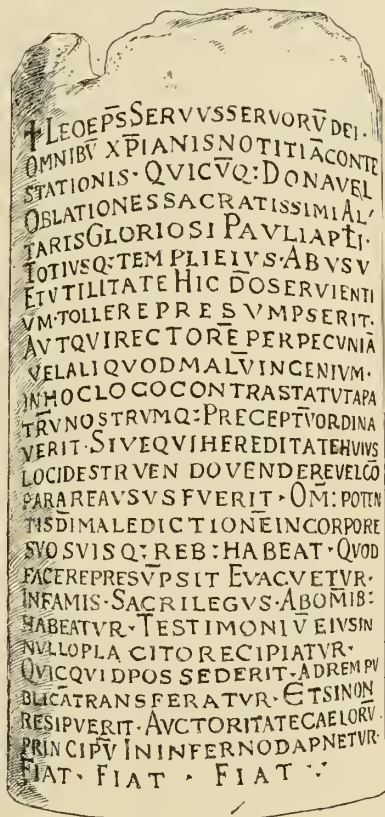 ✝LEOEP̅SSERVVSSERVORV̅DEI·
OMNIBV̅ XP̅IANISNOTITIA̅CONTE
STATIONIS·QVICV̅Q:DONAVEL
OBLATIONESSACRATISSIMIAL'
TARISGLORIOSI PAVLIAPŁI·
TOTIVSQ:TEMPLIEIVS·ABVSV
ETVTILITATE HIC D̅OSERVIENTI
VM·TOLLEREPRESVMPSERIT·
AVTQVIRECTORE̅PERPECVNIA̅
VELALIQVODMALV̅INGENIVM·
INHOCLOCOCONTRASTATVTAPA
TRV̅NOSTRVMQ:PRECEPTV̅ORDINA
VERIT·SIVEQVIHEREDITATEHVIVS
LOCIDESTRVENDOVENDEREVELCO̅
PARAREAVSVSFVERIT·OM̅:POTEN
TISD̅IMALEDICTIONE̅INCORPORE
SVOSVISQ:REB:HABEAT·QVOD
FACEREPRESV̅PSIT EVACVETVR·
INFAMIS·SACRILEGVS·ABOM̅IB:
HABEATVR·TESTIMONIV̅EIVSIN
NVLLOPLACITORECIPIATVR·
QVICQVIDPOSSEDERIT·ADREMPV
BLICA̅TRANSFERATVR·ETSINON
RESIPVERIT·AVCTORITATECAELORV̅
PRINCIPV̅ ININFERNODAPNETVR·
FIAT· FIAT · FIAT ∵